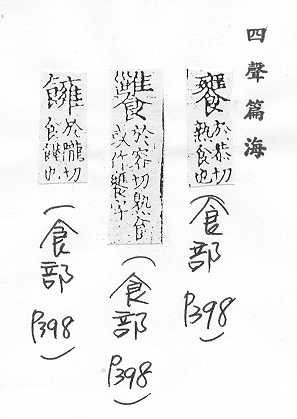 四聲篇海
饔
於恭切
熟食也
(食部
P398)
於容切熟食
或作饔字
(食部
P398)
於隴切
食 也
(食部
P398)